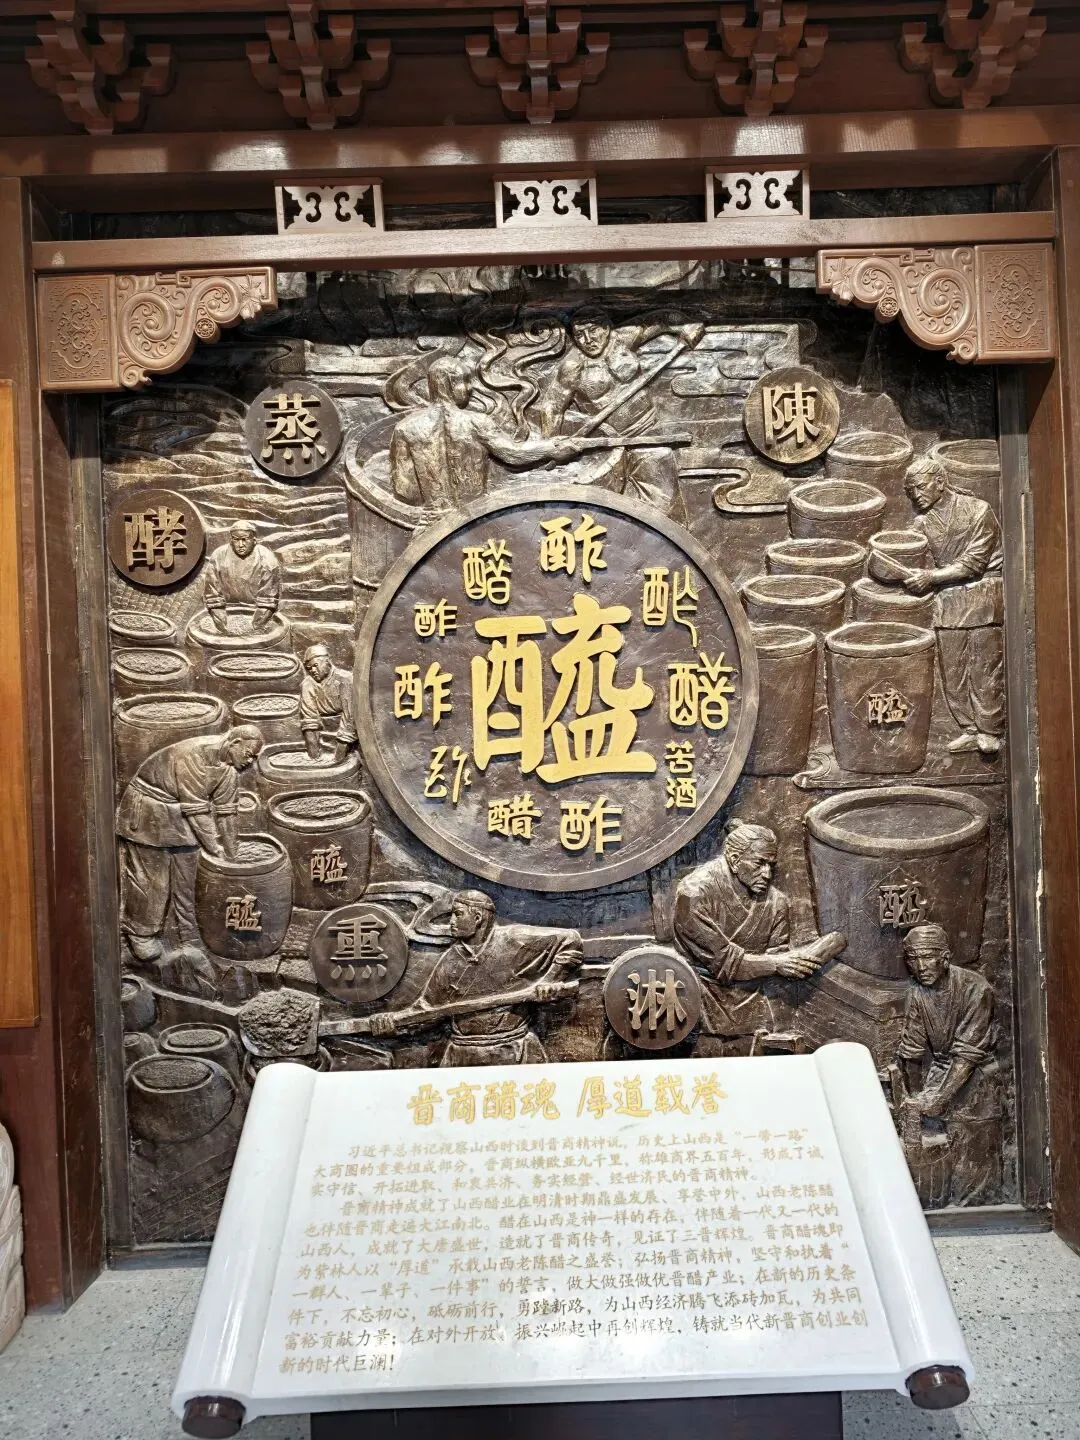 蒸
陳
酵
醋
酢
酢
酢
醯
醋
苦酒
醋
酢
醯
醯
醯
醯
熏
淋
晋商醋魂 厚道载誉
习近平总书记视察山西时谈到晋商精神说，历史上山西是“一带一路”
大商圈的重要组成部分，晋商纵横欧亚九千里，称雄商界五百年，形成了诚
实守信、开拓进取、和衷共济、务实经营、经世济民的晋商精神。
晋商精神成就了山西醋业在明清时期鼎盛发展、享誉中外，山西老陈醋
也伴随晋商走遍大江南北。醋在山西是神一样的存在，伴随着一代又一代的
山西人，成就了大唐盛世，造就了晋商传奇，见证了三晋辉煌。晋商醋魂即
为紫林人以“厚道”承载山西老陈醋之盛誉；弘扬晋商精神，坚守和执着“
一群人、一辈子、一件事”的誓言，做大做强做优晋醋产业；在新的历史条
件下，不忘初心，砥砺前行，勇蹚新路，为山西经济腾飞添砖加瓦，为共同
富裕贡献力量；在对外开放、振兴崛起中再创辉煌，铸就当代新晋商创业创
新的时代巨澜！